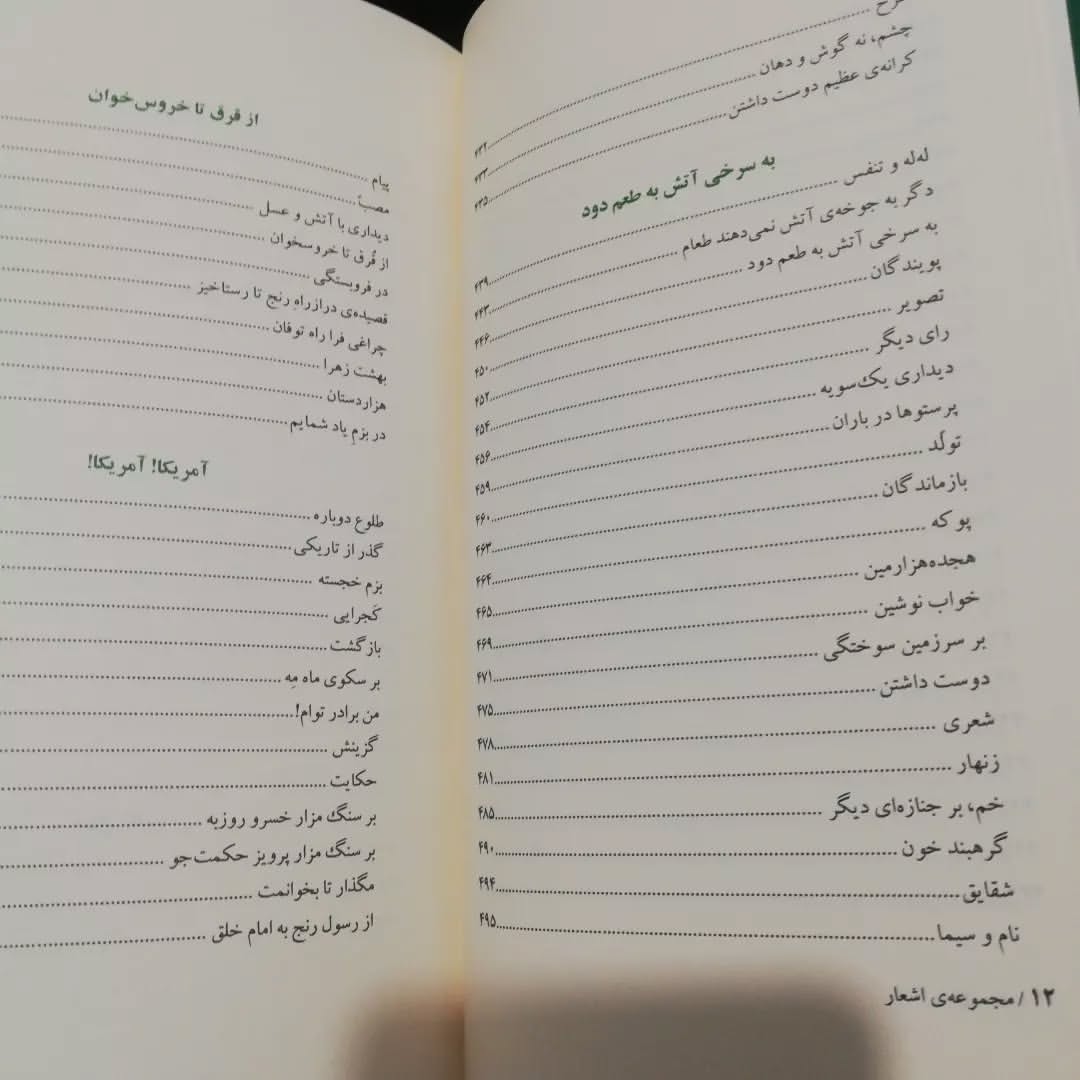 چشم، نه گوش و دهان ........ ۴۳۳
کرانه‌ی عظیم دوست داشتن ........ ۴۳۵
به سرخی آتش به طعم دود
له‌له و تنفس ........ ۴۳۹
دگر به جوخه‌ی آتش نمی‌دهند طعام ........ ۴۴۳
به سرخی آتش به طعم دود ........ ۴۴۶
پویندگان ........ ۴۵۰
تصویر ........ ۴۵۲
رای دیگر ........ ۴۵۴
دیداری یک‌سویه ........ ۴۵۶
پرستوها در باران ........ ۴۵۹
تولّد ........ ۴۶۰
بازماندگان ........ ۴۶۳
پو که ........ ۴۶۴
هجده‌هزارمین ........ ۴۶۵
خواب نوشین ........ ۴۶۹
بر سرزمین سوختگی ........ ۴۷۱
دوست داشتن ........ ۴۷۵
شعری ........ ۴۷۸
زنهار ........ ۴۸۱
خم، بر جنازه‌ای دیگر ........ ۴۸۵
گرهبند خون ........ ۴۹۰
شقایق ........ ۴۹۴
نام و سیما ........ ۴۹۵
۱۲ / مجموعه‌ی اشعار
از قرق تا خروس‌خوان
پیام
مصبّ
دیداری با آتش و عسل
از قُرق تا خروسخوان
در فروبستگی
قصیده‌ی درازراهِ رنج تا رستاخیز
چراغی فرا راه توفان
بهشت زهرا
هزاردستان
در بزمِ یاد شمایم
آمریکا! آمریکا!
طلوع دوباره
گذر از تاریکی
بزم خجسته
کَجرایی
بازگشت
بر سکوی ماه مِه
من برادر توام!
گزینش
حکایت
بر سنگ مزار خسرو روزبه
بر سنگ مزار پرویز حکمت‌جو
مگذار تا بخوانمت
از رسول رنج به امام خلق